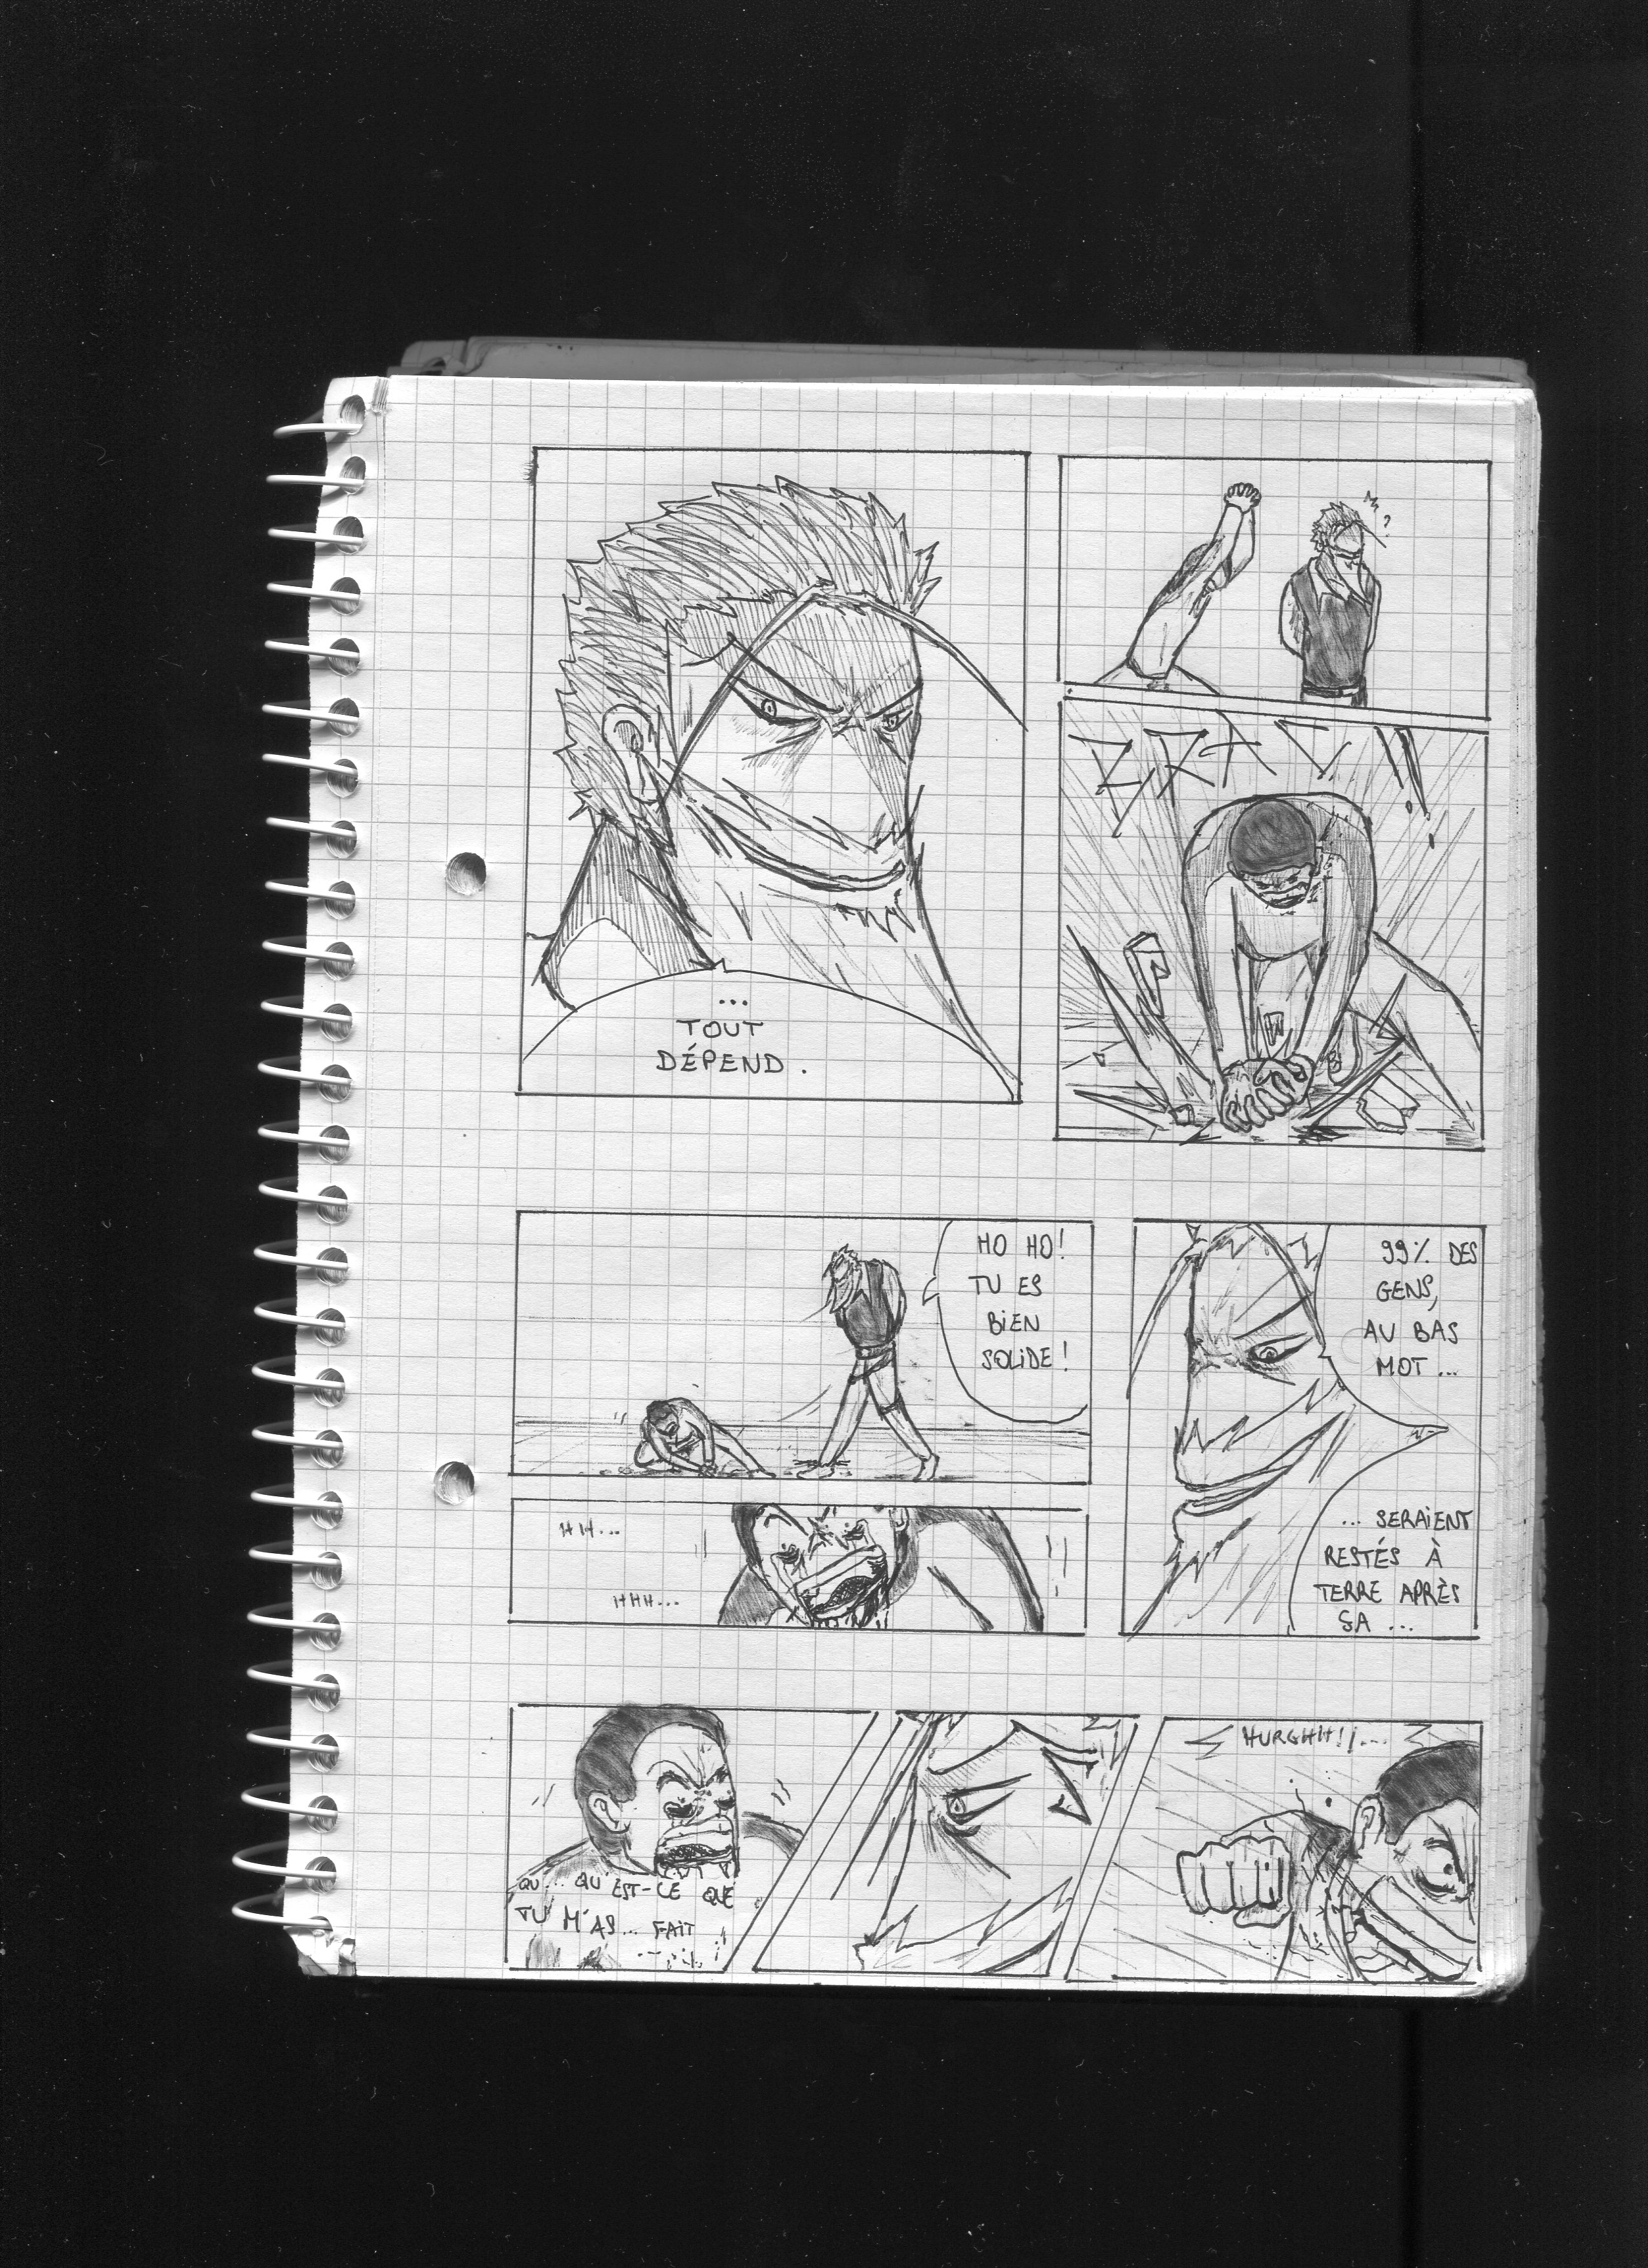 ...
TOUT
DÉPEND.
?
HO HO!
TU ES
BIEN
SOLIDE!
HH...
HHH...
99% DES
GENS,
AU BAS
MOT...
... SERAIENT
RESTÉS À
TERRE APRÈS
ÇA ...
QU... QU'EST-CE QUE
TU M'AS... FAIT
HURGHH!!...